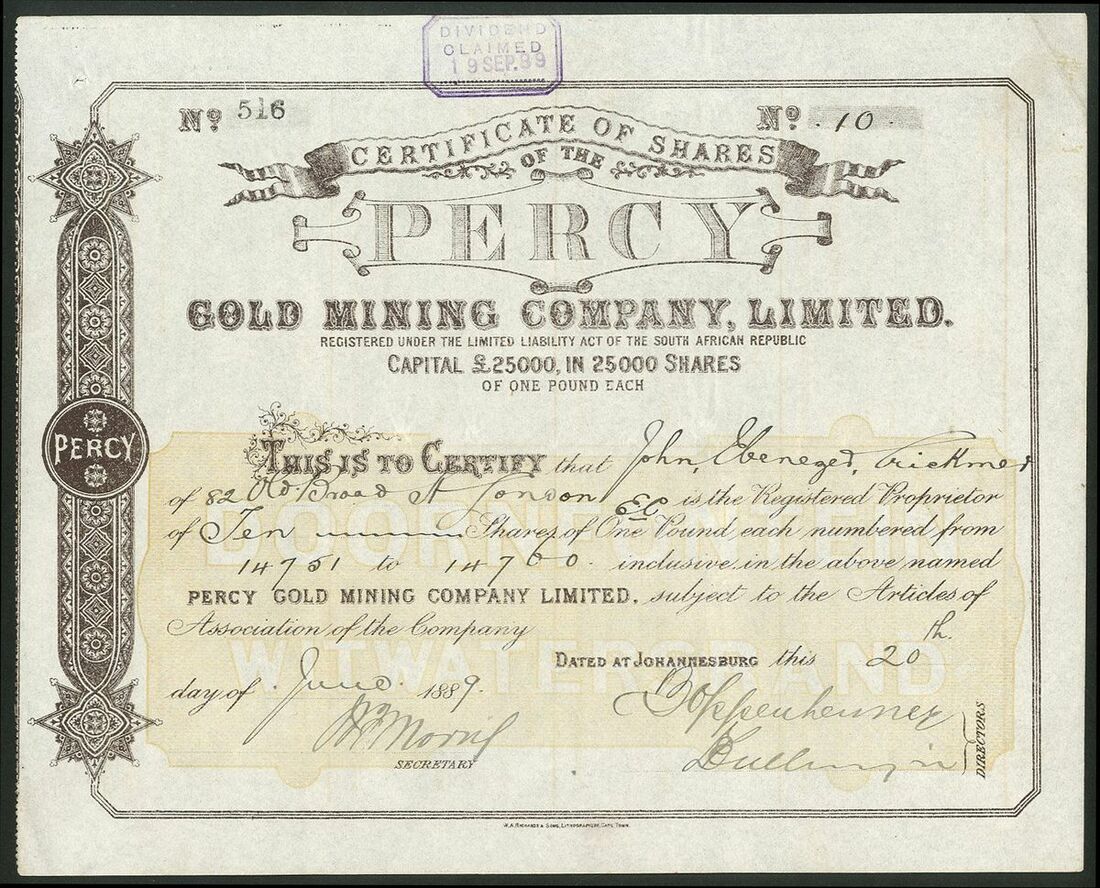 DIVIDEND
CLAIMED
19 SEP. 99
No. 516
No. 10
CERTIFICATE OF SHARES
OF THE
PERCY
GOLD MINING COMPANY, LIMITED.
REGISTERED UNDER THE LIMITED LIABILITY ACT OF THE SOUTH AFRICAN REPUBLIC
CAPITAL £25000, IN 25000 SHARES
OF ONE POUND EACH
PERCY
THIS IS TO CERTIFY that John, Ebenezer,
of 82 Old Broad St London EC is the Registered Proprietor
of Ten Shares of One Pound each numbered from
14751 to 14760. inclusive in the above named
PERCY GOLD MINING COMPANY LIMITED. subject to the Articles of
Association of the Company
DOORNFONTEIN
WITWATERSRAND
DATED AT JOHANNESBURG this 20th.
day of June 1889.
SECRETARY
Oppenheimer
DIRECTORS
W.A. RICHARDS & SONS, LITHOGRAPHERS, CAPE TOWN.